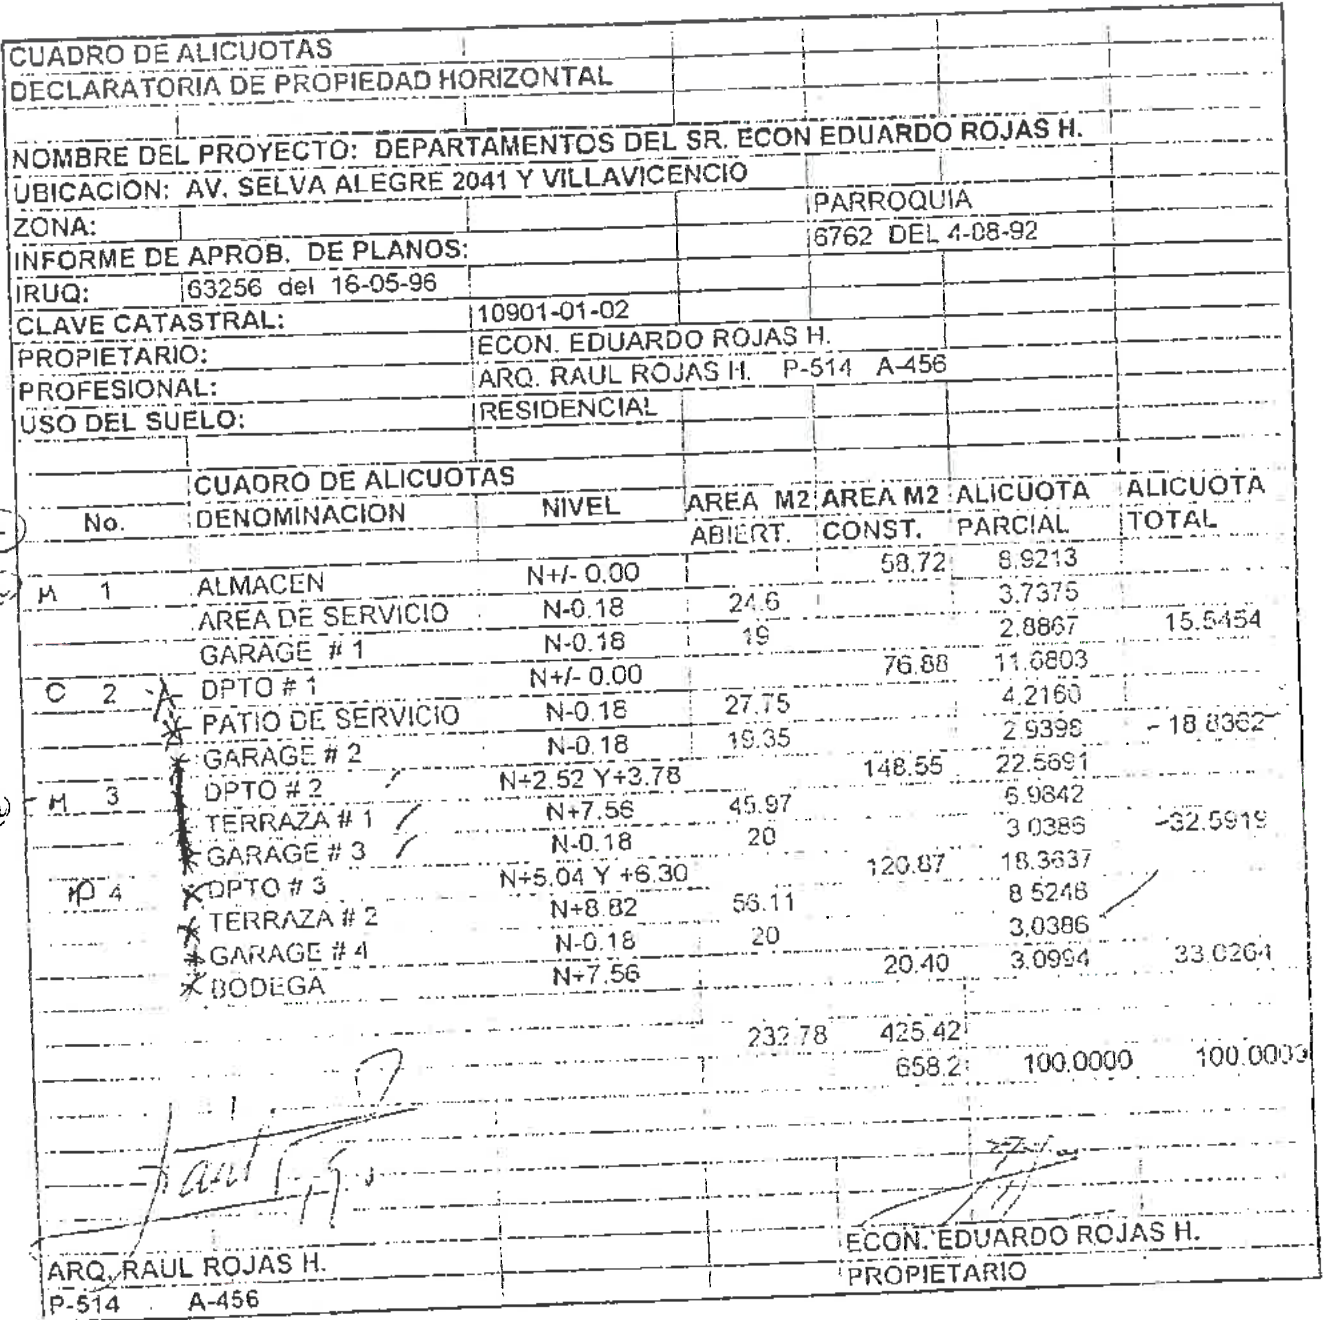 CUADRO DE ALICUOTAS
DECLARATORIA DE PROPIEDAD HORIZONTAL
NOMBRE DEL PROYECTO: DEPARTAMENTOS DEL SR. ECON EDUARDO ROJAS H.
UBICACION: AV. SELVA ALEGRE 2041 Y VILLAVICENCIO
ZONA: PARROQUIA
INFORME DE APROB. DE PLANOS: 6762 DEL 4-08-92
IRUQ: 63256 del 16-05-96
CLAVE CATASTRAL: 10901-01-02
PROPIETARIO: ECON. EDUARDO ROJAS H.
PROFESIONAL: ARQ. RAUL ROJAS H. P-514 A-456
USO DEL SUELO: RESIDENCIAL
CUADRO DE ALICUOTAS
No. DENOMINACION NIVEL AREA M2 AREA M2 ALICUOTA ALICUOTA
ABIERT. CONST. PARCIAL TOTAL
M 1 ALMACEN N+/- 0.00 58.72 8.9213
AREA DE SERVICIO N-0.18 24.6 3.7375
GARAGE # 1 N-0.18 19 2.8867 15.5454
C 2 DPTO # 1 N+/- 0.00 76.88 11.6803
PATIO DE SERVICIO N-0.18 27.75 4.2160
GARAGE # 2 N-0.18 19.35 2.9398 - 18.8362
M 3 DPTO # 2 N+2.52 Y+3.78 148.55 22.5691
TERRAZA # 1 N+7.56 45.97 6.9842
GARAGE # 3 N-0.18 20 3.0386 -32.5919
4 DPTO # 3 N+5.04 Y +6.30 120.87 18.3637
TERRAZA # 2 N+8.82 56.11 8.5248
GARAGE # 4 N-0.18 20 3.0386
BODEGA N+7.56 20.40 3.0994 33.0264
232.78 425.42
658.2 100.0000 100.0000
ARQ. RAUL ROJAS H.
P-514 A-456
ECON. EDUARDO ROJAS H.
PROPIETARIO